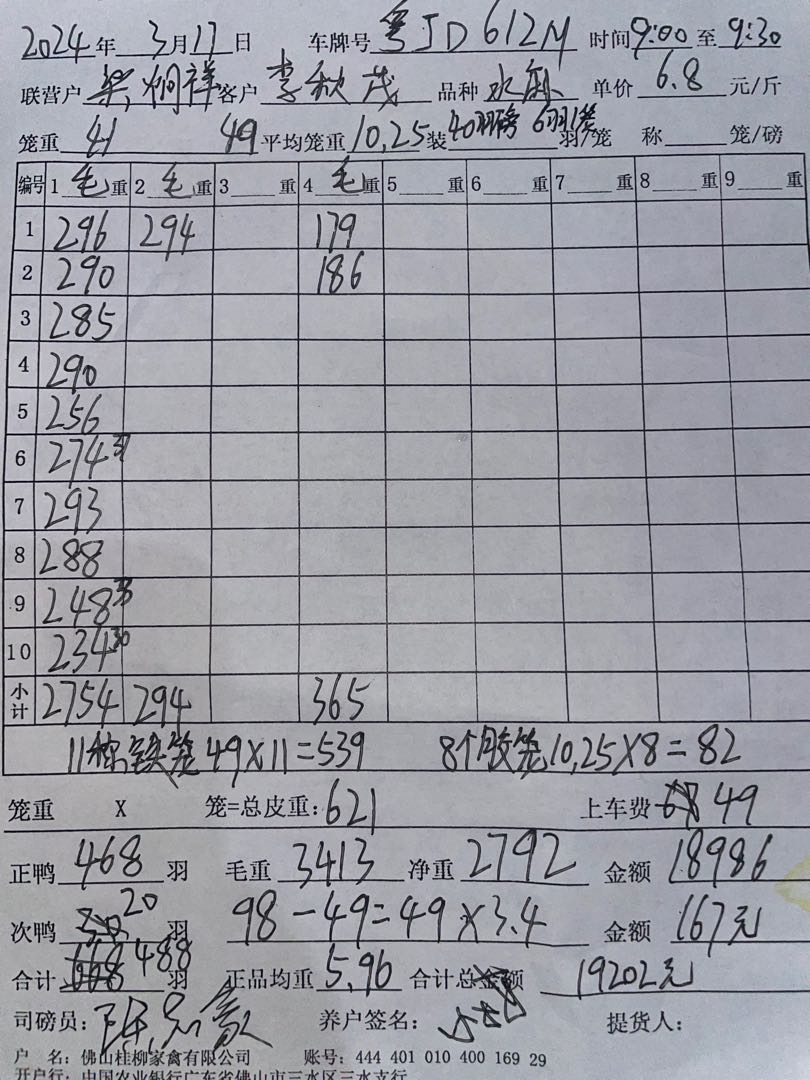 2024年 3月17日 车牌号 粤JD612M 时间9:00至9:30
联营户 梁炯祥 客户 李秋茂 品种 水鸭 单价 6.8 元/斤
笼重 41 49 平均笼重 10.25 装 40羽磅 6羽1笼 羽/笼 称 笼/磅
编号 1 毛 重 2 毛 重 3 重 4 毛 重 5 重 6 重 7 重 8 重 9 重
1 296 294 179
2 290 186
3 285
4 290
5 256
6 274 37
7 293
8 288
9 248 35
10 234 30
小计 2754 294 365
11称铁笼 49×11=539 8个胶笼 10.25×8=82
笼重 X 笼=总皮重: 621 上车费 49
正鸭 468 羽 毛重 3413 净重 2792 金额 18986
次鸭 20 羽 98-49=49×3.4 金额 167元
合计 488 羽 正品均重 5.96 合计总金额 19202元
司磅员: 养户签名: 提货人:
户 名: 佛山桂柳家禽有限公司 账号: 444 401 010 400 169 29
开户行: 中国农业银行广东省佛山市三水区三水支行